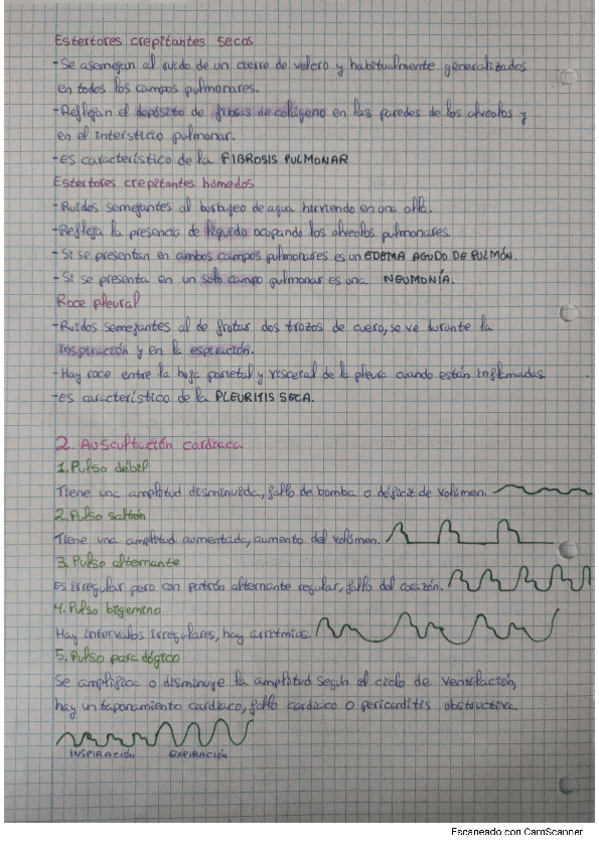 Estertores crepitantes secos
- Se asemejan al ruido de un cierre de velcro y habitualmente generalizados
en todos los campos pulmonares.
- Reflejan el depósito de fibras de colágeno en las paredes de los alveolos y
en el intersticio pulmonar.
- Es característico de la FIBROSIS PULMONAR
Estertores crepitantes húmedos
- Ruidos semejantes al burbujeo de agua hirviendo en una olla.
- Refleja la presencia de líquido ocupando los alveolos pulmonares.
- Si se presentan en ambos campos pulmonares es un EDEMA AGUDO DE PULMÓN.
- Si se presenta en un solo campo pulmonar es una NEUMONÍA.
Roce pleural
- Ruidos semejantes al de frotar dos trozos de cuero, se ve durante la
inspiración y en la espiración.
- Hay roce entre la hoja parietal y visceral de la pleura cuando están inflamadas
- Es característico de la PLEURITIS SECA.
2. Auscultación cardiaca
1. Pulso débil
Tiene una amplitud disminuida, fallo de bomba o déficit de volumen.
2. Pulso saltón
Tiene una amplitud aumentada, aumento del volumen.
3. Pulso alternante
Es irregular pero con patrón alternante regular, fallo del corazón.
4. Pulso bigemino
Hay intervalos irregulares, hay arritmias.
5. Pulso paradógico
Se amplifica o disminuye la amplitud según el ciclo de ventilación,
hay un taponamiento cardiaco, fallo cardiaco o pericarditis obstructiva.
INSPIRACIÓN EXPIRACIÓN
Escaneado con CamScanner